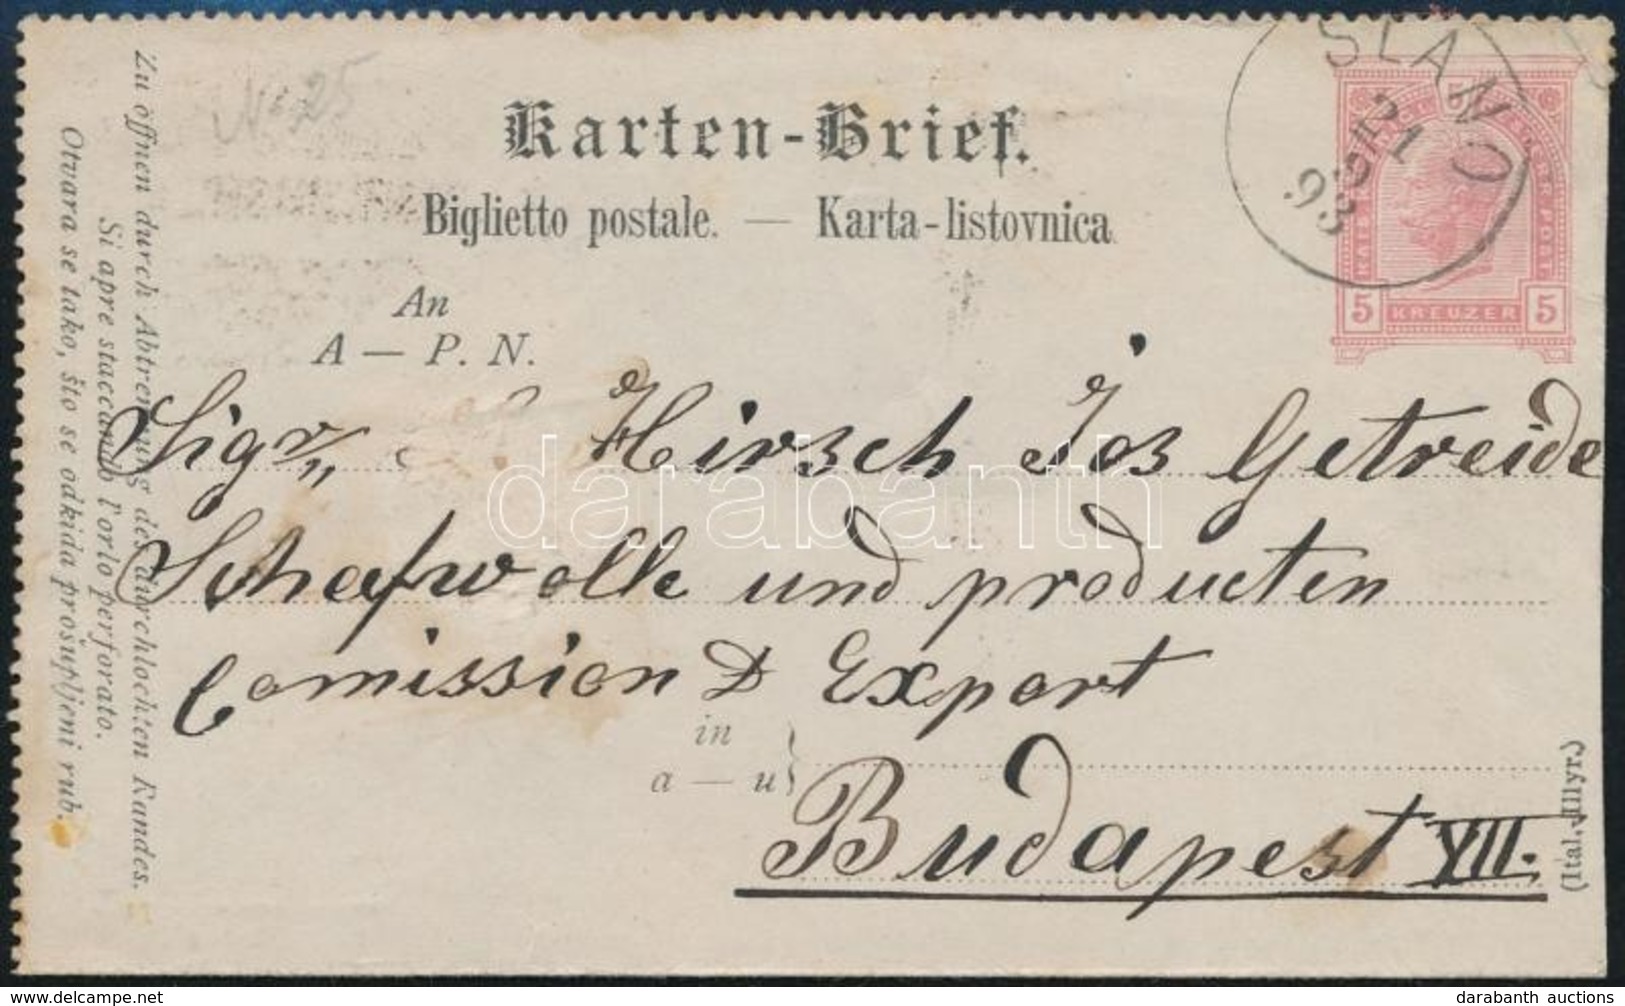 Karten-Brief.
Biglietto postale. — Karta-listovnica
An
A — P. N.
Sigr Hirsch Jos Getreide
Schafwolle und producten
Comission & Export
in
a — u
Budapest VII.
(Ital. Illyr.)
Zu öffnen durch Abtrennung des durchlochten Randes.
Si apre staccando l'orlo perforato.
Otvara se tako, što se odkida prošupljeni rub.
No 25
SLANO
21
93
KAIS.
POST.
5 KREUZER 5
darabanth
darabanth auctions